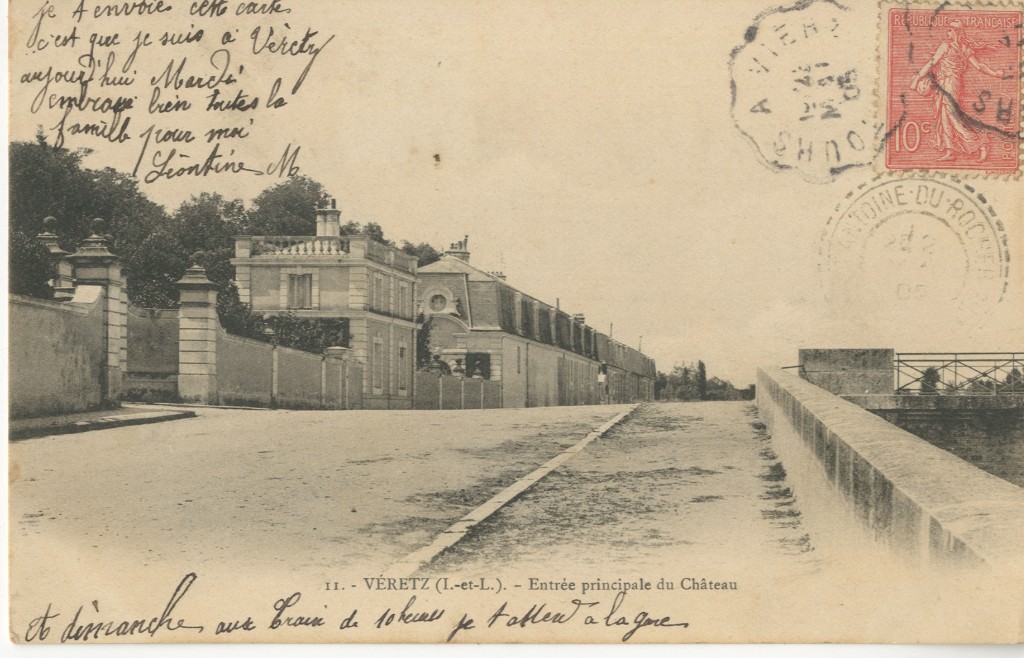 je t envoies cette carte
c'est que je suis a Véretz
aujourd'hui Mardi
embrasse bien toutes la
famille pour moi
Léontine M
A VIERZ
TOURS
05
REPUBLIQUE FRANÇAISE
10 c
ANTOINE-DU-ROCHER
05
11. - VÉRETZ (I.-et-L.). - Entrée principale du Château
et dimanche aux train de 10 heures je t'attend à la gare